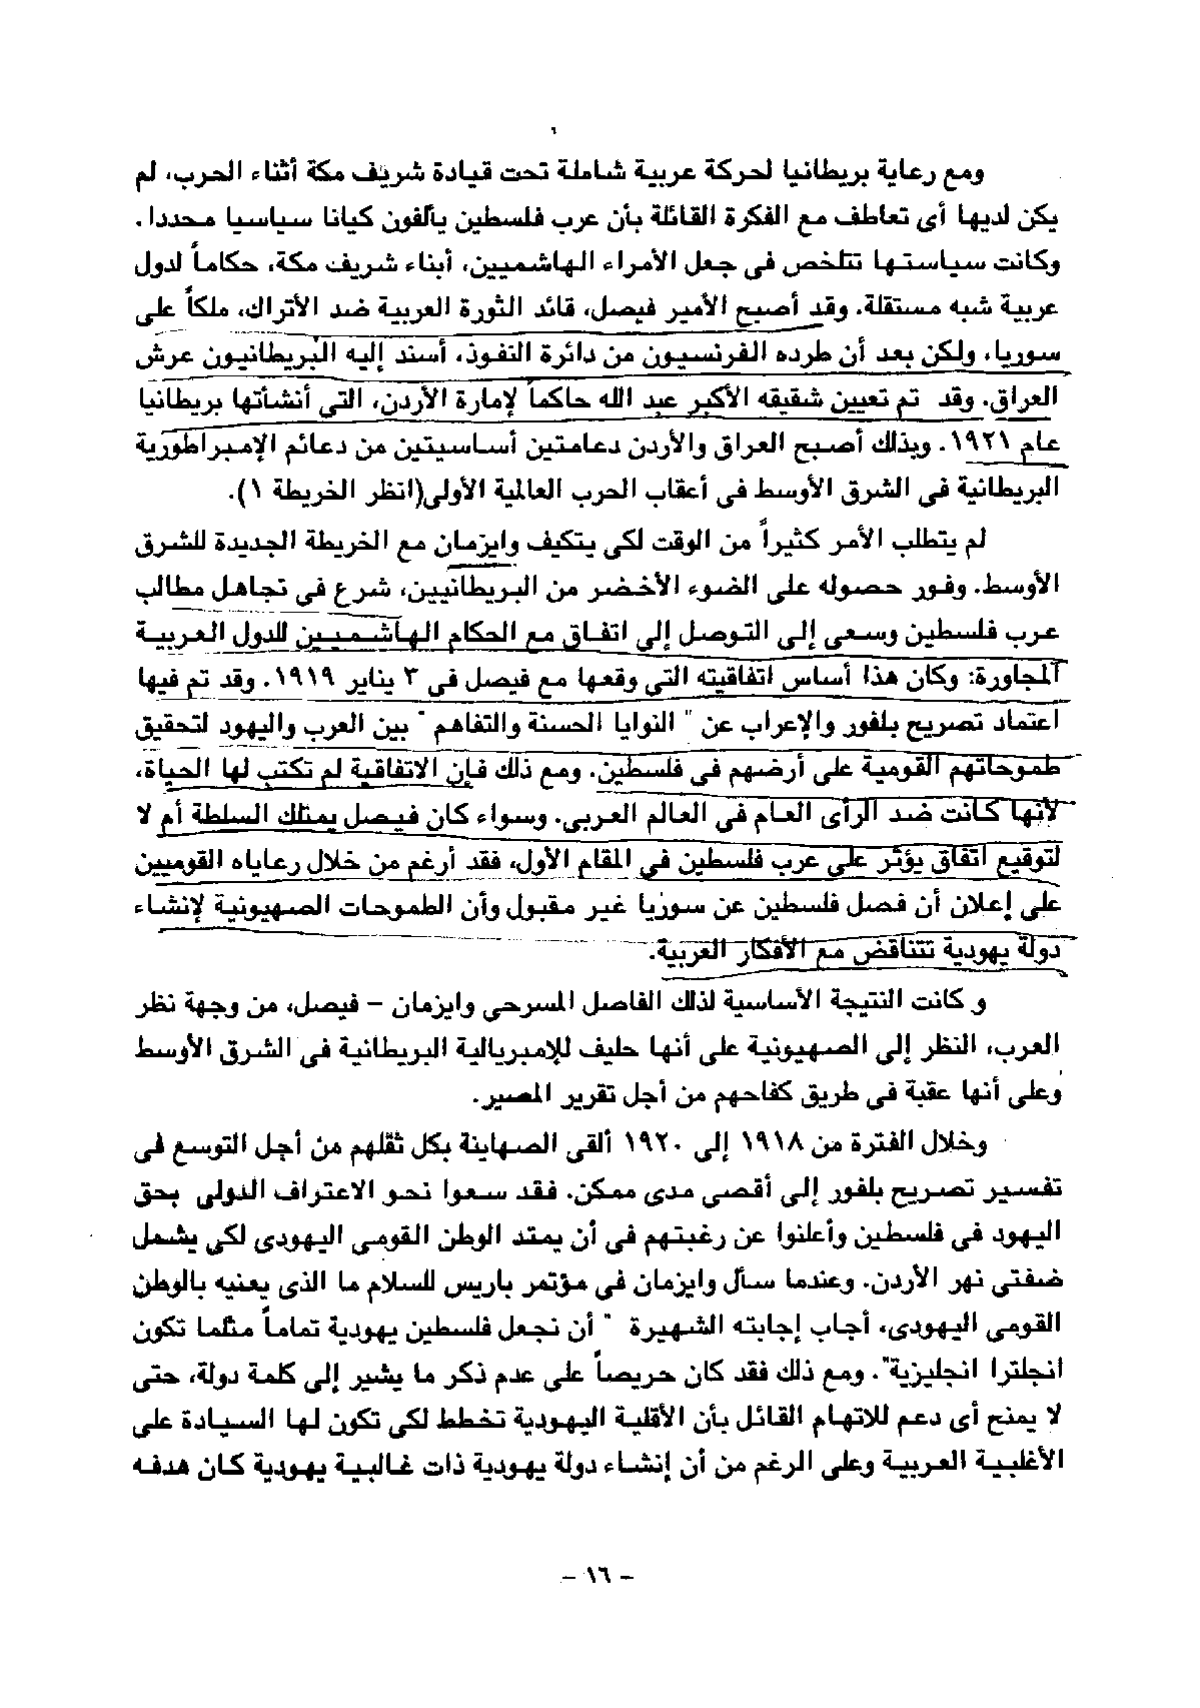 ومع رعاية بريطانيا لحركة عربية شاملة تحت قيادة شريف مكة أثناء الحرب، لم
يكن لديها أى تعاطف مع الفكرة القائلة بأن عرب فلسطين يألفون كيانا سياسيا محددا .
وكانت سياستها تتلخص فى جعل الأمراء الهاشميين، أبناء شريف مكة، حكاماً لدول
عربية شبه مستقلة. وقد أصبح الأمير فيصل، قائد الثورة العربية ضد الأتراك، ملكاً على
سوريا، ولكن بعد أن طرده الفرنسيون من دائرة النفوذ، أسند إليه البريطانيون عرش
العراق. وقد تم تعيين شقيقه الأكبر عبد الله حاكماً لإمارة الأردن، التى أنشأتها بريطانيا
عام ١٩٢١. وبذلك أصبح العراق والأردن دعامتين أساسيتين من دعائم الإمبراطورية
البريطانية فى الشرق الأوسط فى أعقاب الحرب العالمية الأولى(انظر الخريطة ١).
لم يتطلب الأمر كثيراً من الوقت لكى يتكيف وايزمان مع الخريطة الجديدة للشرق
الأوسط. وفور حصوله على الضوء الأخضر من البريطانيين، شرع فى تجاهل مطالب
عرب فلسطين وسعى إلى التوصل إلى اتفاق مع الحكام الهاشميين للدول العربية
المجاورة: وكان هذا أساس اتفاقيته التى وقعها مع فيصل فى ٣ يناير ١٩١٩. وقد تم فيها
اعتماد تصريح بلفور والإعراب عن " النوايا الحسنة والتفاهم " بين العرب واليهود لتحقيق
طموحاتهم القومية على أرضهم فى فلسطين. ومع ذلك فإن الاتفاقية لم تكتب لها الحياة،
لأنها كانت ضد الرأى العام فى العالم العربى. وسواء كان فيصل يمتلك السلطة أم لا
لتوقيع اتفاق يؤثر على عرب فلسطين فى المقام الأول، فقد أرغم من خلال رعاياه القوميين
على إعلان أن فصل فلسطين عن سوريا غير مقبول وأن الطموحات الصهيونية لإنشاء
دولة يهودية تتناقض مع الأفكار العربية.
و كانت النتيجة الأساسية لذلك الفاصل المسرحى وايزمان – فيصل، من وجهة نظر
العرب، النظر إلى الصهيونية على أنها حليف للإمبريالية البريطانية فى الشرق الأوسط
وعلى أنها عقبة فى طريق كفاحهم من أجل تقرير المصير.
وخلال الفترة من ١٩١٨ إلى ١٩٢٠ ألقى الصهاينة بكل ثقلهم من أجل التوسع فى
تفسير تصريح بلفور إلى أقصى مدى ممكن. فقد سعوا نحو الاعتراف الدولى بحق
اليهود فى فلسطين وأعلنوا عن رغبتهم فى أن يمتد الوطن القومى اليهودى لكى يشمل
ضفتى نهر الأردن. وعندما سأل وايزمان فى مؤتمر باريس للسلام ما الذى يعنيه بالوطن
القومى اليهودى، أجاب إجابته الشهيرة " أن نجعل فلسطين يهودية تماماً مثلما تكون
انجلترا انجليزية". ومع ذلك فقد كان حريصاً على عدم ذكر ما يشير إلى كلمة دولة، حتى
لا يمنح أى دعم للاتهام القائل بأن الأقلية اليهودية تخطط لكى تكون لها السيادة على
الأغلبية العربية وعلى الرغم من أن إنشاء دولة يهودية ذات غالبية يهودية كان هدفه
– ١٦ –